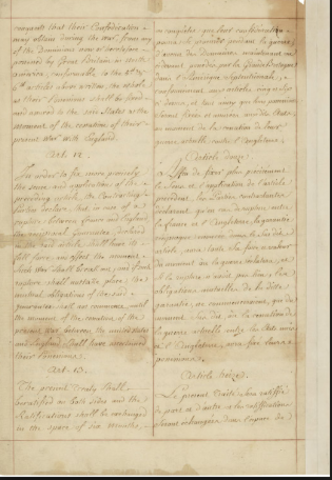 conquests that their Confederation
may obtain during the war, from any
of the Dominions now or heretofore
possessed by Great Britain in North
America, conformable to the 5th &
6th articles above written, the whole
as their Possessions shall be fixed
and assured to the said States at the
moment of the cessation of their
present War with England.
Art. 12.
In order to fix more precisely
the sense and application of the
preceding article, the Contracting
Parties declare, that in case of a
rupture between France and England,
the reciprocal Guarantee declared
in the said article shall have its
full force and effect the moment
such War shall break out, and if such
rupture shall not take place, the
mutual obligations of the said
guarantee shall not commence, until
the moment of the cessation of the
present War between the united states
and England shall have ascertained
their Possessions.
Art. 13.
The present Treaty shall
be ratified on both sides and the
Ratifications shall be exchanged
in the space of six months,
conquêtes que leur confédération
pourra se procurer pendant la guerre,
d'aucun des Domaines, maintenant ou
ci devant possédés par la Grande Bretagne
dans l'Amérique Septentrionale,
conformément aux articles cinq et six
ci dessus, et tout ainsi que leurs possessions
seront fixées et assurées aux dits Etats
au moment de la cessation de leur
guerre actuelle contre l'Angleterre.
Article douze
Afin de fixer plus précisément
le sens et l'application de l'article
précédent, les Parties contractantes
déclarent qu'en cas de rupture entre
la france et l'Angleterre, la garantie
réciproque énoncée dans le Sus dit
article aura toute sa force et valeur
du moment où la guerre éclatera, et
si la rupture n'avoit pas lieu, les
obligations mutuelles de la dite
garantie, ne commenceroient, que du
moment sus dit, où la cessation de
la guerre actuelle entre les Etats unis
et l'Angleterre, aura fixé leurs
possessions.
Article treize
Le présent Traité sera ratifié
de part et d'autre et les ratifications
seront échangées dans l'espace de